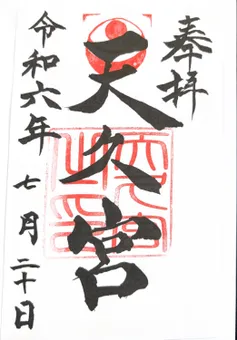 奉拝
天久宮
令和六年七月二十日